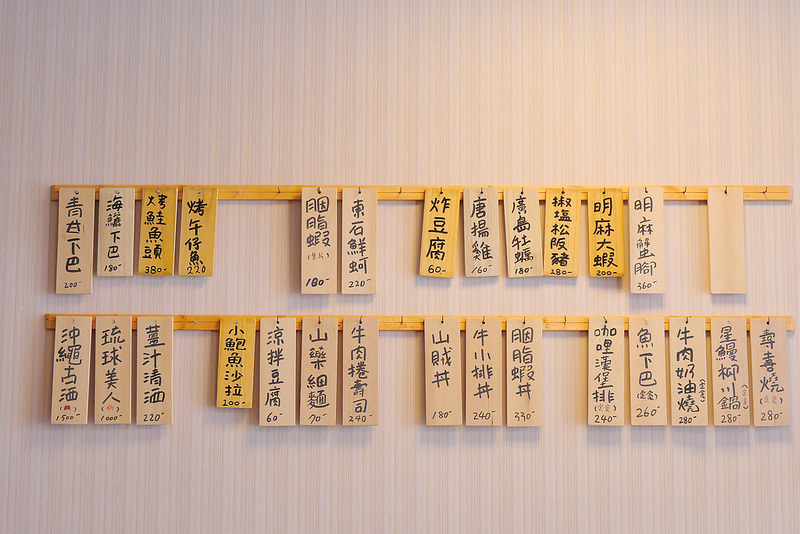 青甘下巴
200-
海鱺下巴
180-
烤鮭魚頭
380-
烤午仔魚
220
胭脂蝦
180-
東石鮮蚵
220-
炸豆腐
60-
唐揚雞
160-
廣島牡蠣
180-
椒塩松阪豬
280-
明麻大蝦
200-
明麻蟹腳
360-
沖繩古酒
1500-
琉球美人
1000-
薑汁清酒
220
小鮑魚沙拉
200-
涼拌豆腐
60-
山藥細麵
70-
牛肉捲壽司
240-
山賊丼
180-
牛小排丼
240-
胭脂蝦丼
330-
咖哩漢堡排
(定食)
240-
魚下巴
(定食)
260-
牛肉奶油燒
(定食)
280-
星鰻柳川鍋
(定食)
280-
壽喜燒
(定食)
280-